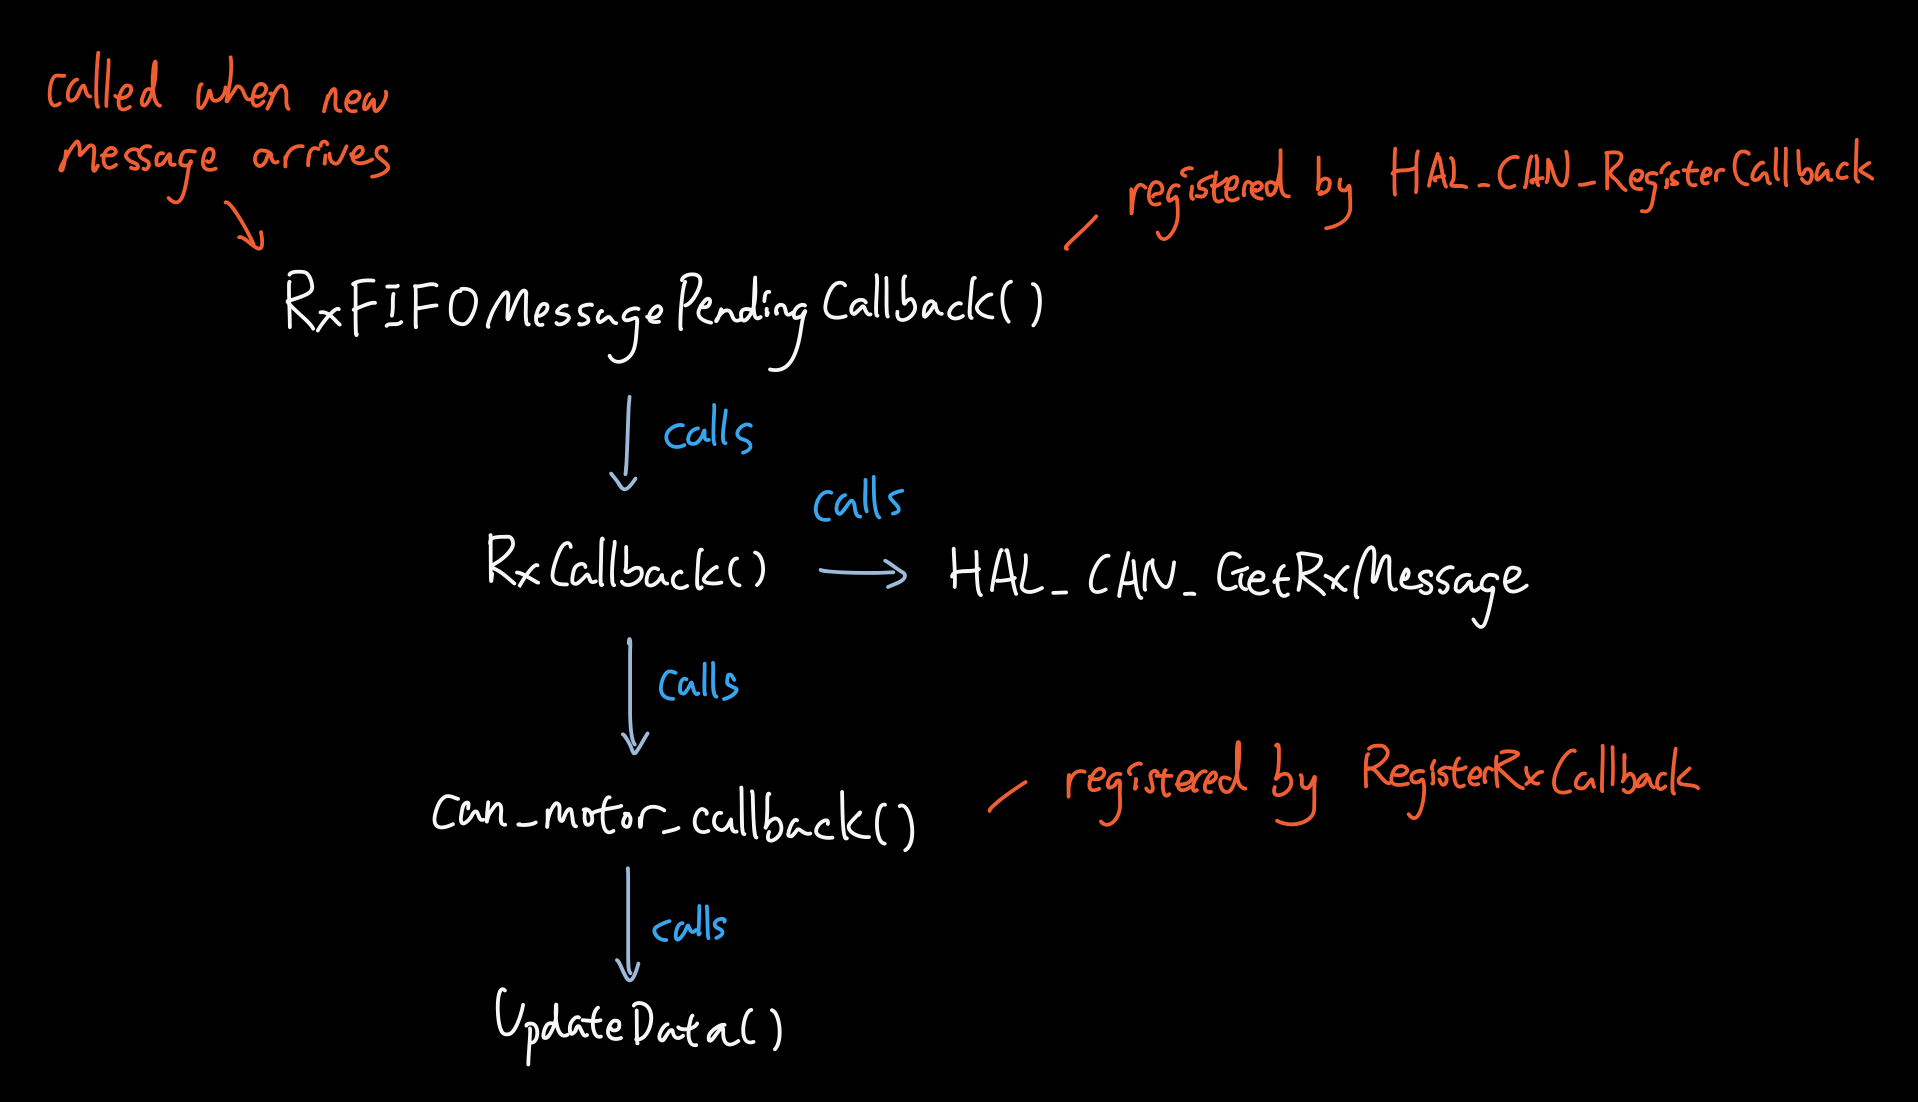 called when new
message arrives
registered by HAL_CAN_RegisterCallback
RxFIFOMessagePendingCallback()
calls
calls
RxCallback()
HAL_CAN_GetRxMessage
calls
registered by RegisterRxCallback
can_motor_callback()
calls
UpdateData()